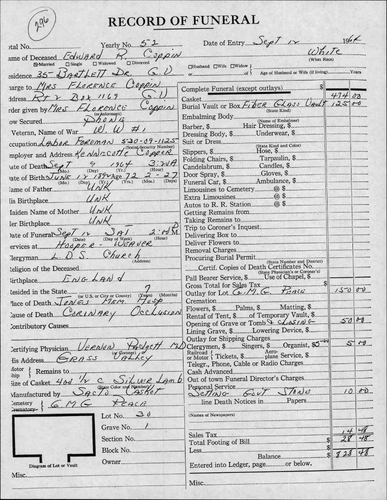 296
RECORD OF FUNERAL
Yearly No. 52
Date of Entry Sept 12 1964
Name of Deceased Edward R. Coppin
White
Married Single Widowed Divorced
Husband Wife Widow
(What Race)
Residence 35 Bartlett Dr. G.V.
Age of Husband or Wife (if living) Years
Charge to Mrs Florence Coppin
Complete Funeral (except outlays) $
Address Rt 2 Box 1169 G.V.
Casket 474 00
Order given by Mrs Florence Coppin
Burial Vault or Box Fiber Glass Vault 125 00
(State Kind)
How Secured Phone
Embalming
(Name of Embalmer)
Veteran, Name of War W.W. #1
Barber, $ Hair Dressing, $
Dressing Body, $ Underwear, $
Occupation Labor Foreman 530-09-1125
Suit or Dress
(State Kind and Color)
Employer and Address Kennecott Copper
Slippers, $ Hose, $
Folding Chairs, $ Tarpaulin, $
Date of Death Sept 9 1964 3:20A
Candelabrum, $ Candles, $
Date of Birth June 12 1892 72-2-27
Door Spray, $ Gloves, $
Funeral Car, $ Ambulance, $
Name of Father Unk
Limousines to Cemetery @ $
His Birthplace Unk
Extra Limousines @ $
Autos to R. R. Station @ $
Maiden Name of Mother Unk
Getting Remains
Taking Remains
Her Birthplace Unk
Trip to Coroner's Inquest
Delivering Box
Date of Funeral Sept 12 Sat 2 PM
Deliver Flowers
Services at Hooper-Weaver
Removal Charges
Clergyman L.D.S. Church
Procuring Burial Permit
(State Number and District)
Certif. Copies of Death Certificates No.
Religion of the Deceased
Pall Bearer Service, $ Use of Chapel, $
Birthplace England
Gross Total for Sales Tax
Resided in the State ?
Outlay for Lot G.M.G. Peace 150 00
Cremation
Place of Death Jones Mem Hosp
Flowers, $ Palms, $ Matting, $
Cause of Death Coronary Occlusion
Rental of Tent, $ of Temporary Vault, $
Opening of Grave or Tomb & Closing 50 00
Contributory Causes
Lining Grave, $ Lowering Device, $
Outlay for Shipping Charges
Clergymen, $ Singers, $ Organist, $ 5 00
Tickets, $
Address Grass Valley
Telegr., Phone, Cable or Radio Charges
Cash Advanced
Remains to
Out of town Funeral Director's Charge
Personal Service
Manufactured by Sacto Casket
Setting Govt Stone 10 00
line Death Notices in Papers
G.M.G. Peace
(Names of Newspapers)
Lot No. 30
Grave No. 1
Section No.
Sales Tax 14 48
Block No.
Total Footing of Bill $ 828 48
Less
Owner
Balance $ 828 48
Diagram of Lot or Vault
Entered into Ledger, page or below.
Misc.
Misc.